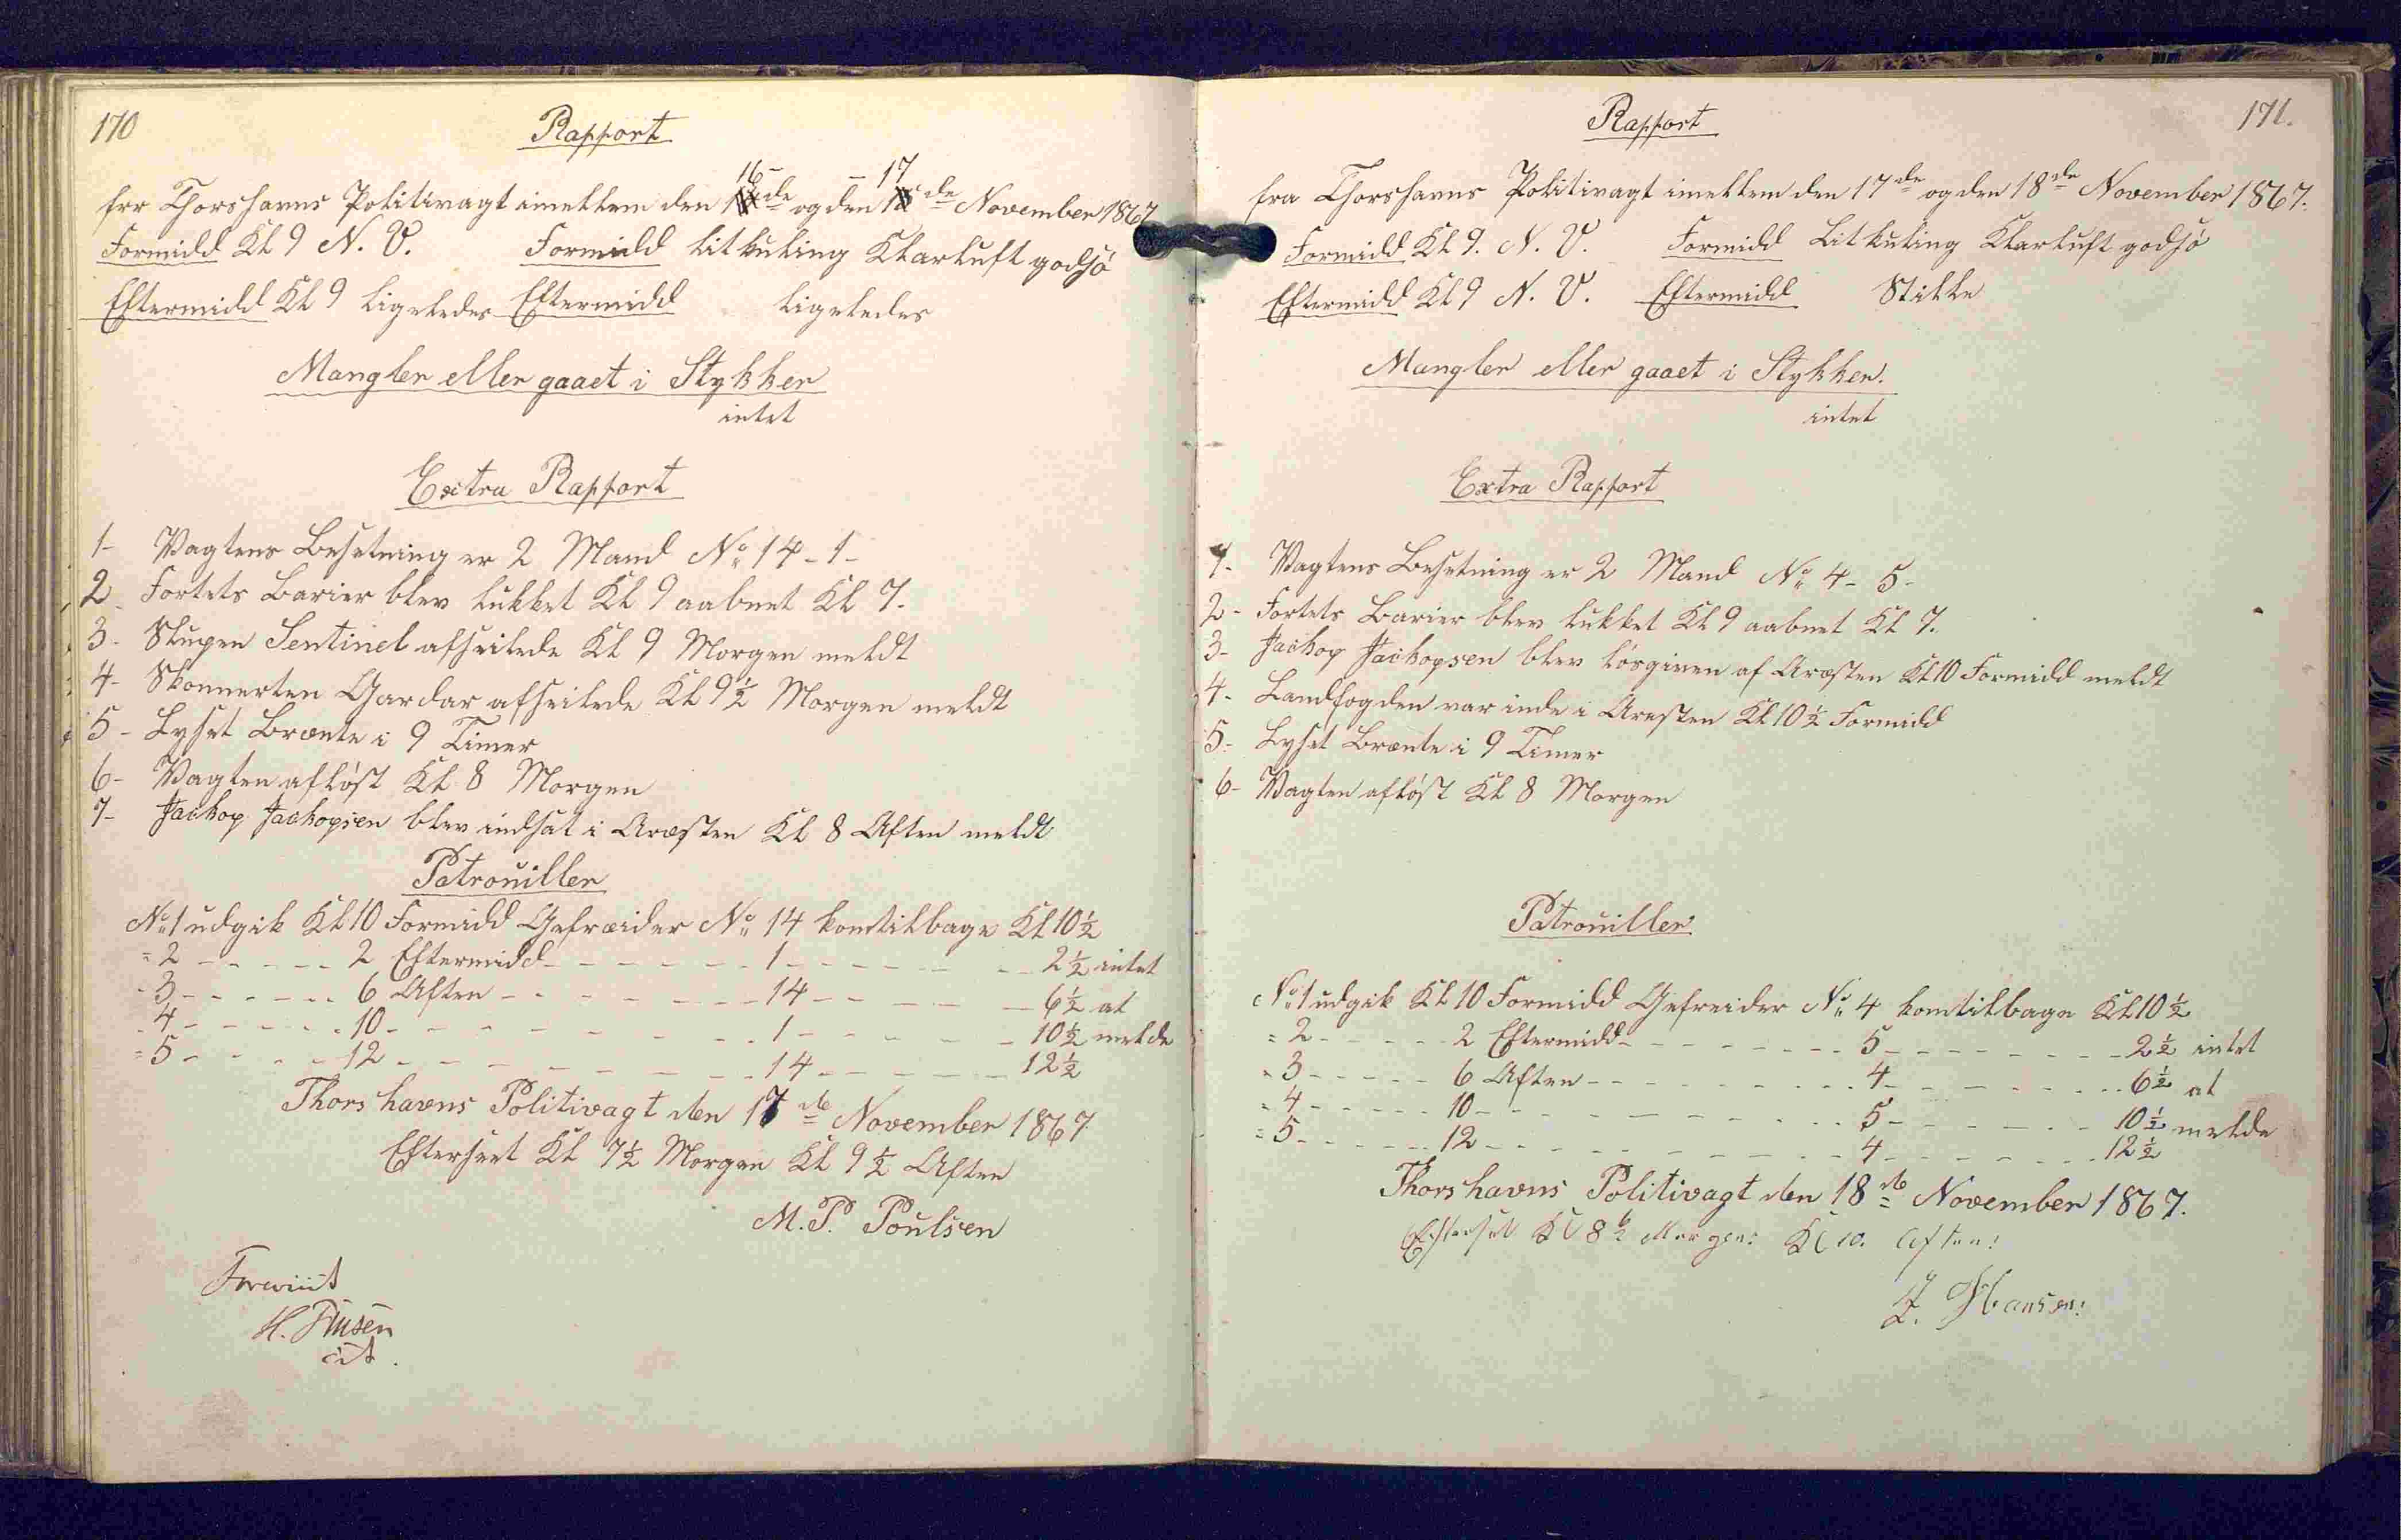 170
Rapport
16 – – 17
fra Thorshavns Politivagt imellem den de og den 1 de November 1867
Formidd Kl 9 N. V. Formidd litkuling Klarluft godsjö
Eftermidd Kl 9 ligeledes Eftermidd ligeledes
Mangler eller gaaet i Stykker
intet
Extra Rapport
1- Vagtens Besetning er 2 Mand No 14 - 1 -
2. Fortets Barier blev lukket Kl 9 aabnet Kl 7.
3- Slupen Sentinel afseilede Kl 9 Morgen meldt
4- Skonnerten Gardar afseilede Kl 9½ Morgen meldt
5- Lyset Brænte i 9 Timer
6- Vagten aflöst Kl 8 Morgen
7- Jachop Jachopsen blev indsat i Aræsten Kl 8 Aften meldt
Patrouiller
No 1 udgik Kl 10 Formidd Gefræider No 14 komtilbage Kl 10½
= 2 - - - - - 2 Eftermidd - - - - - - 1 - - - - - - 2½ intet
- 3 - - - - - 6 Aften - - - - - - 14 - - - - - 6½ at
- 4 - - - - - 10 - - - - - - - - 1 - - - - - 10½ melde
= 5 - - - - 12 - - - - - - - - 14 - - - - - 12½
Thorshavns Politivagt den 17 de November 1867
Efterseet Kl 7½ Morgen Kl 9½ Aften
M. P. Poulsen
Foreviist
H.
cst.
171.
Rapport
fra Thorshavns Politivagt imellem den 17 de og den 18 de November 1867.
Formidd Kl 9. N. V. Formidd Litkuling Klarluft godsjö
Eftermidd Kl 9 N. V. Eftermidd Stille
Mangler eller gaaet i Stykker.
intet
Extra Rapport
1- Vagtens Besetning er 2 Mand No 4 - 5 -
2- Fortets Barier blev lukket Kl 9 aabnet Kl 7.
3- Jachop Jachopsen blev lösgiven af Aræsten Kl 10 Formidd meldt
4- Landfogden var inde i Aresten Kl 10½ Formidd
5- Lyset Brænte i 9 Timer
6- Vagten aflöst Kl 8 Morgen
Patrouiller
No 1 udgik Kl 10 Formidd Gefreider No 4 komtilbage Kl 10½
= 2 - - - - - 2 Eftermidd - - - - - - 5 - - - - - - 2½ intet
- 3 - - - - - 6 Aften - - - - - - 4 - - - - - - 6½ at
= 4 - - - - - 10 - - - - - - - - 5 - - - - - 10½ melde
= 5 - - - - - 12 - - - - - - - - 4 - - - - - 12½
Thorshavns Politivagt den 18 de November 1867.
Efterset Kl 8½ Morgen: Kl 10. Aften:
J. Hansen: